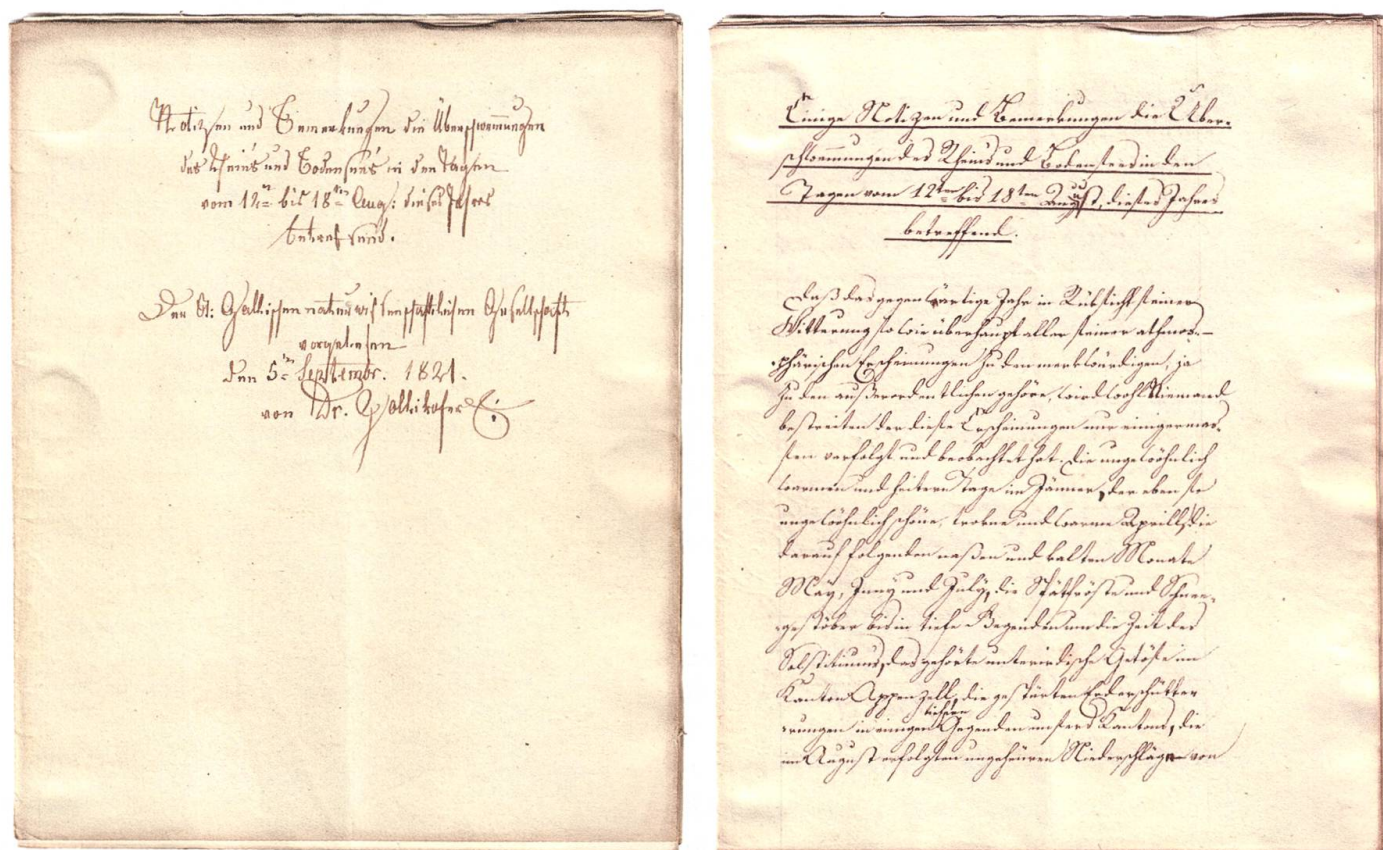 Notizen und Bemerkungen die Überschwemmungen
des Rheins und Bodensees in den Tagen
vom 12ten bis 18ten Aug: dieses Jahres
betreffend.
Der St: Gallischen naturwissenschaftlichen Gesellschaft
vorgelesen
den 5ten Septembr. 1821.
von Dr. Zollikofer
Einige Notizen und Bemerkungen die Über-
schwemmungen des Rheins und Bodensees in den
Tagen vom 12ten bis 18ten August, dieses Jahres
betreffend.
Daß das gegenwärtige Jahr in Rüksicht seiner
Witterung so wie überhaupt aller seiner athmos-
phärischen Erscheinungen zu den merkwürdigen, ja
zu den außerordentlichen gehöre, wird wohl Niemand
bestreiten der diese Erscheinungen nur einigermas-
sen verfolgt und beobachtet hat. Die ungewöhnlich
warmen und heitern Tage im Jänner, der eben so
ungewöhnlich schöne, trokne und warme Aprill, die
darauf folgenden naßen und kalten Monate
May, Juny und July, die Spätfröste und Schnee-
gestöber bis in tiefe Gegenden um die Zeit des
Solstitiums, das gehörte unterirdische Getöse im
Kanton Appenzell, die gespürten Erderschütter
rungen in einigen tiefern Gegenden unsers Kantons, die
im August erfolgten ungeheuren Niederschläge von